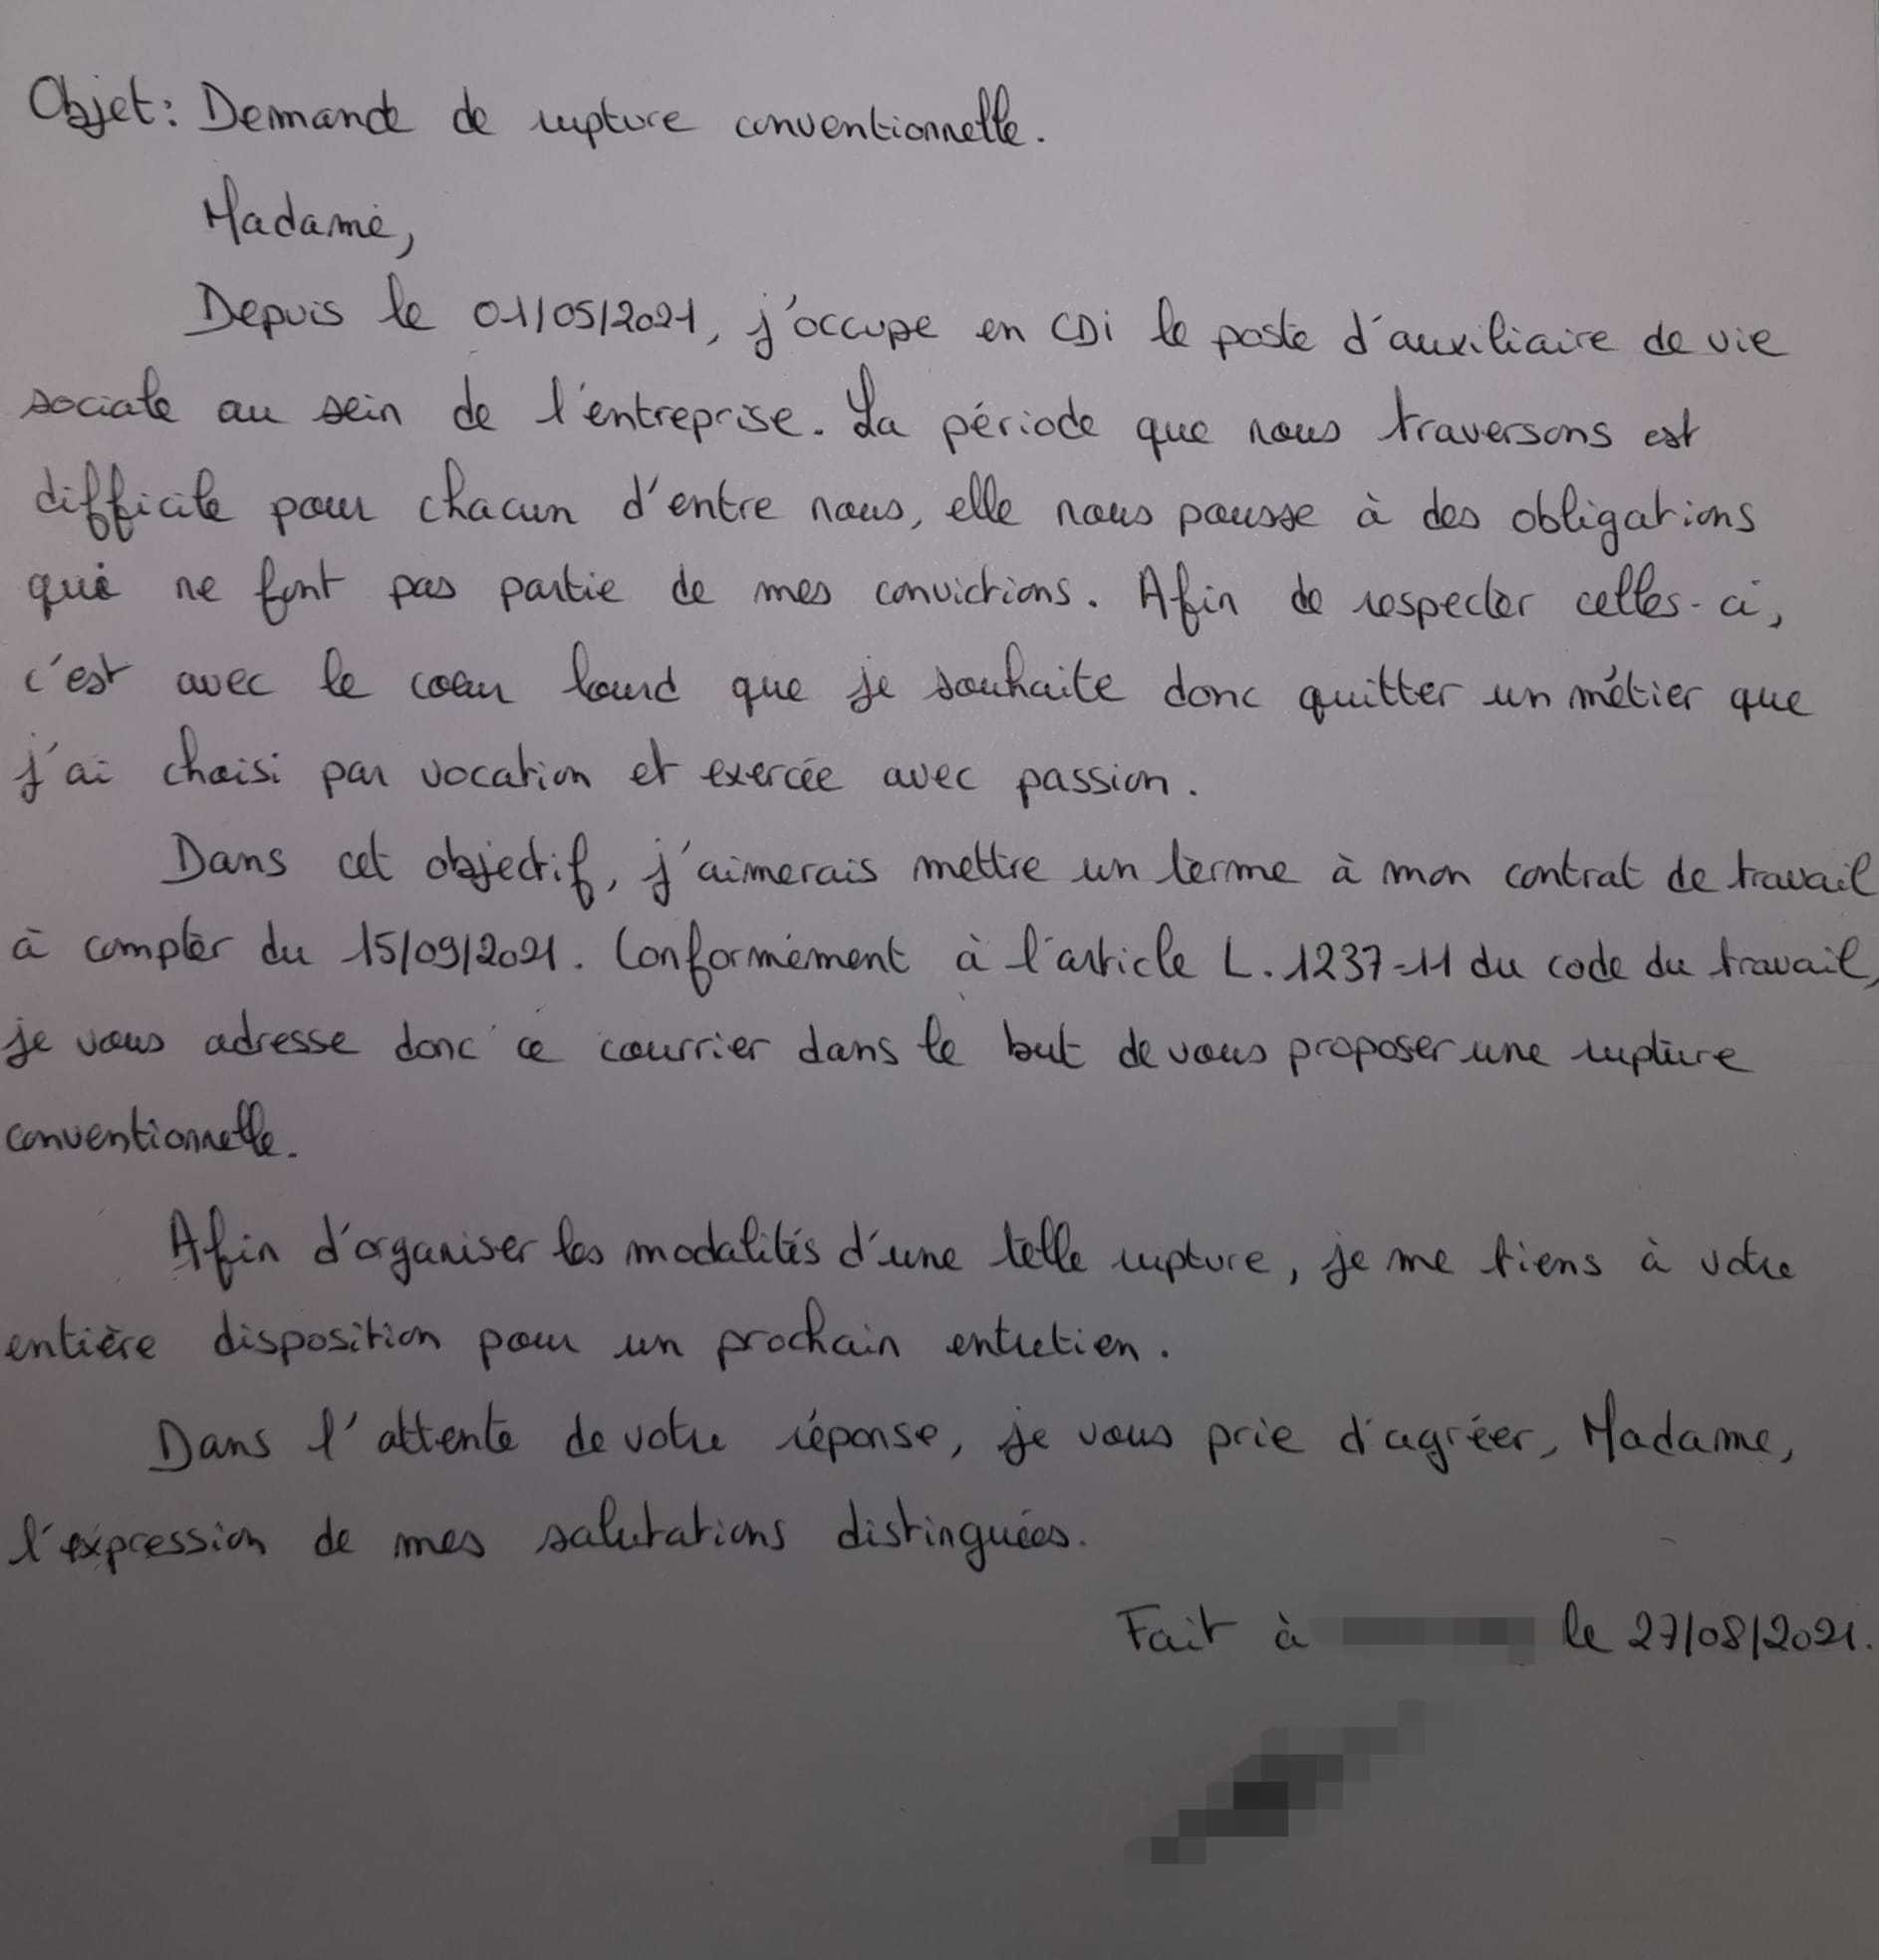 Objet: Demande de rupture conventionnelle.
Madame,
Depuis le 01/05/2021, j'occupe en CDI le poste d'auxiliaire de vie
sociale au sein de l'entreprise. La période que nous traversons est
difficile pour chacun d'entre nous, elle nous pousse à des obligations
qui ne font pas partie de mes convictions. Afin de respecter celles-ci,
c'est avec le coeur lourd que je souhaite donc quitter un métier que
j'ai choisi par vocation et exercée avec passion.
Dans cet objectif, j'aimerais mettre un terme à mon contrat de travail
à compter du 15/09/2021. Conformément à l'article L.1237-11 du code du travail,
je vous adresse donc ce courrier dans le but de vous proposer une rupture
conventionnelle.
Afin d'organiser les modalités d'une telle rupture, je me tiens à votre
entière disposition pour un prochain entretien.
Dans l'attente de votre réponse, je vous prie d'agréer, Madame,
l'expression de mes salutations distinguées.
Fait à le 27/08/2021.